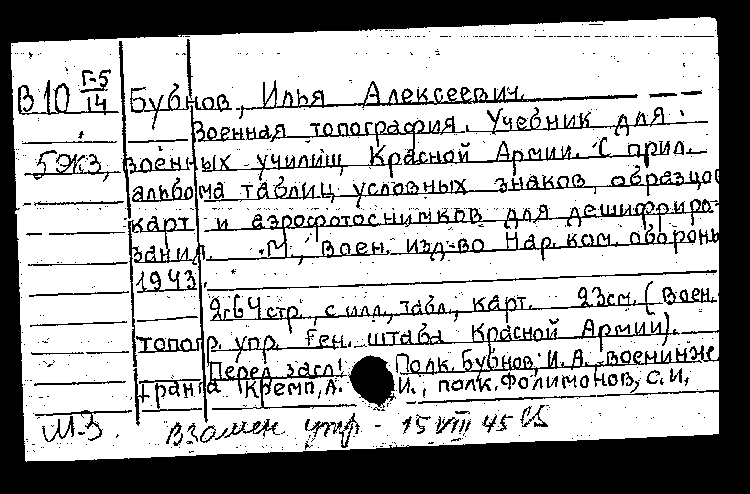 В 10 Г-5/14 Бубнов, Илья Алексеевич.
Военная топография. Учебник для
5 экз, военных училищ Красной Армии. С прил.
альбома таблиц условных знаков, образцов
карт и аэрофотоснимков для дешифриро-
вания. М., Воен. изд-во Нар. ком. обороны
1943.
264 стр., с илл., табл., карт. 23см. (Воен.
топогр. упр. Ген. штаба Красной Армии).
Перед загл: Полк. Бубнов, И. А., военинже
Кремп, А. И., полк. Филимонов, С. И,
М-З. Взамен утр - 15 VIII 45